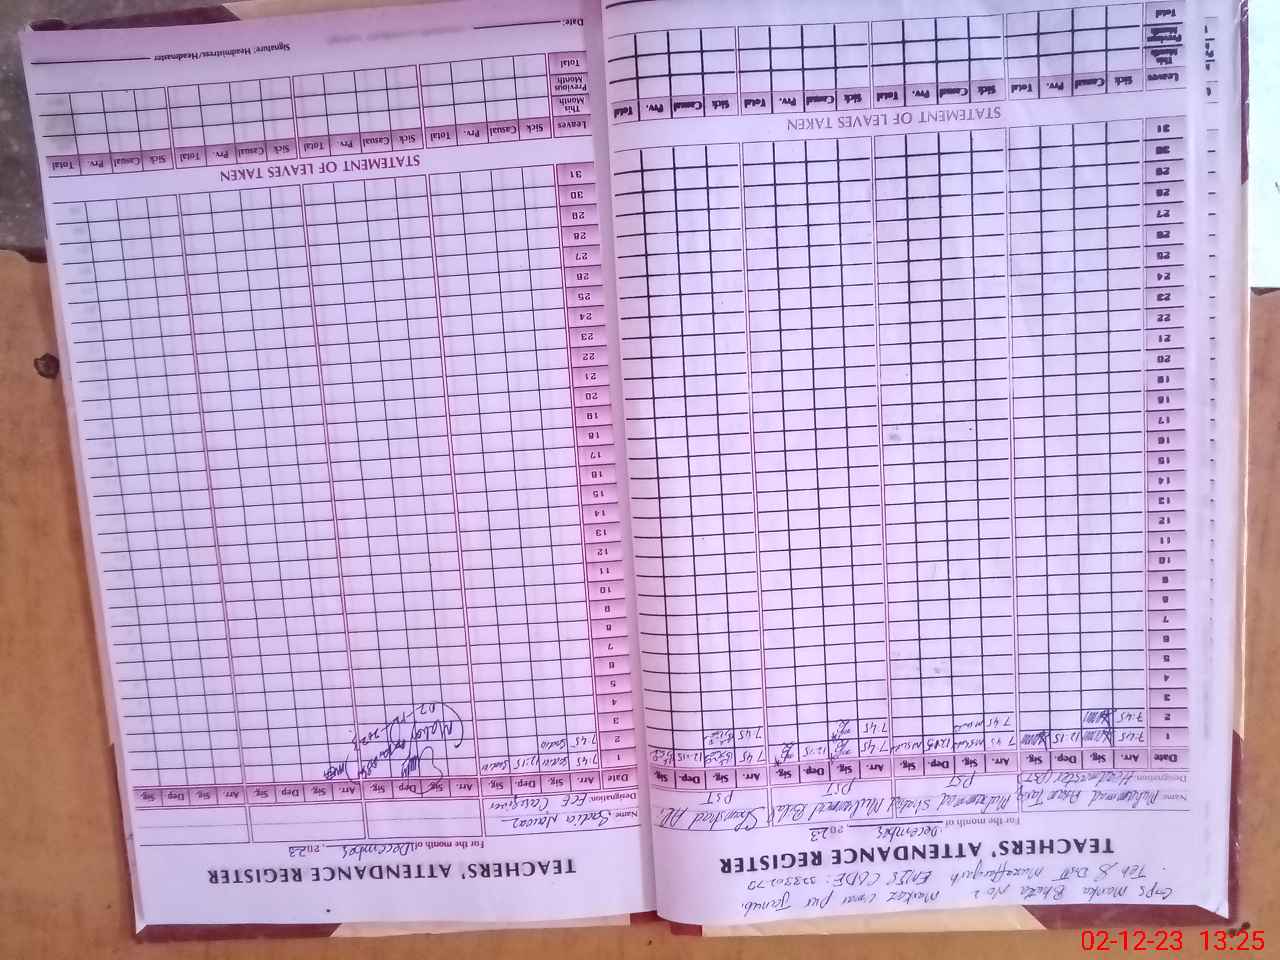 GPS Manka Bhuta No 2 Markaz Umar Pur Janub.
Teh & Distt Muzaffargarh EMIS CODE: 32330270
TEACHERS' ATTENDANCE REGISTER
For the month of December 2023
Name: Muhammad Muhammad Muhammad Bilal Shamshad
Designation: Headmaster PST PST PST PST
Date Arr. Sig. Dep Sig. Arr. Sig. Dep Sig. Arr. Sig. Dep Sig. Arr. Sig. Dep Sig.
1 7:45 12:15 7:45 12:15 7:45 12:15 7:45 12:15
2 7:45 7:45 7:45 7:45
3
4
5
6
7
8
9
10
11
12
13
14
15
16
17
18
19
20
21
22
23
24
25
26
27
28
29
30
31
STATEMENT OF LEAVES TAKEN
Leaves Sick Casual Prv. Total Sick Casual Prv. Total Sick Casual Prv. Total Sick Casual Prv. Total
This Month
Previous Month
Total
TEACHERS' ATTENDANCE REGISTER
For the month of December, 2023
Name: Sadia Nawaz
Designation: ECE Caregiver
Date Arr. Sig. Dep Sig. Arr. Sig. Dep Sig. Arr. Sig. Dep Sig. Arr Sig. Dep Sig.
1 7:45 Sadia 12:15 Sadia
2 7:45 Sadia
3
4
5
6
7
8
9
10
11
12
13
14
15
16
17
18
19
20
21
22
23
24
25
26
27
28
29
30
31
STATEMENT OF LEAVES TAKEN
Leaves Sick Casual Prv. Total Sick Casual Prv. Total Sick Casual Prv. Total Sick Casual Prv. Total
This Month
Previous Month
Total
Signature: Headmistress/Headmaster
Date:
02-12-23 13:25